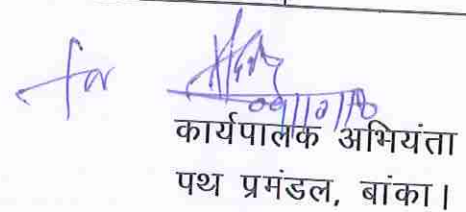 for
कार्यपालक अभियंता
पथ प्रमंडल, बांका।